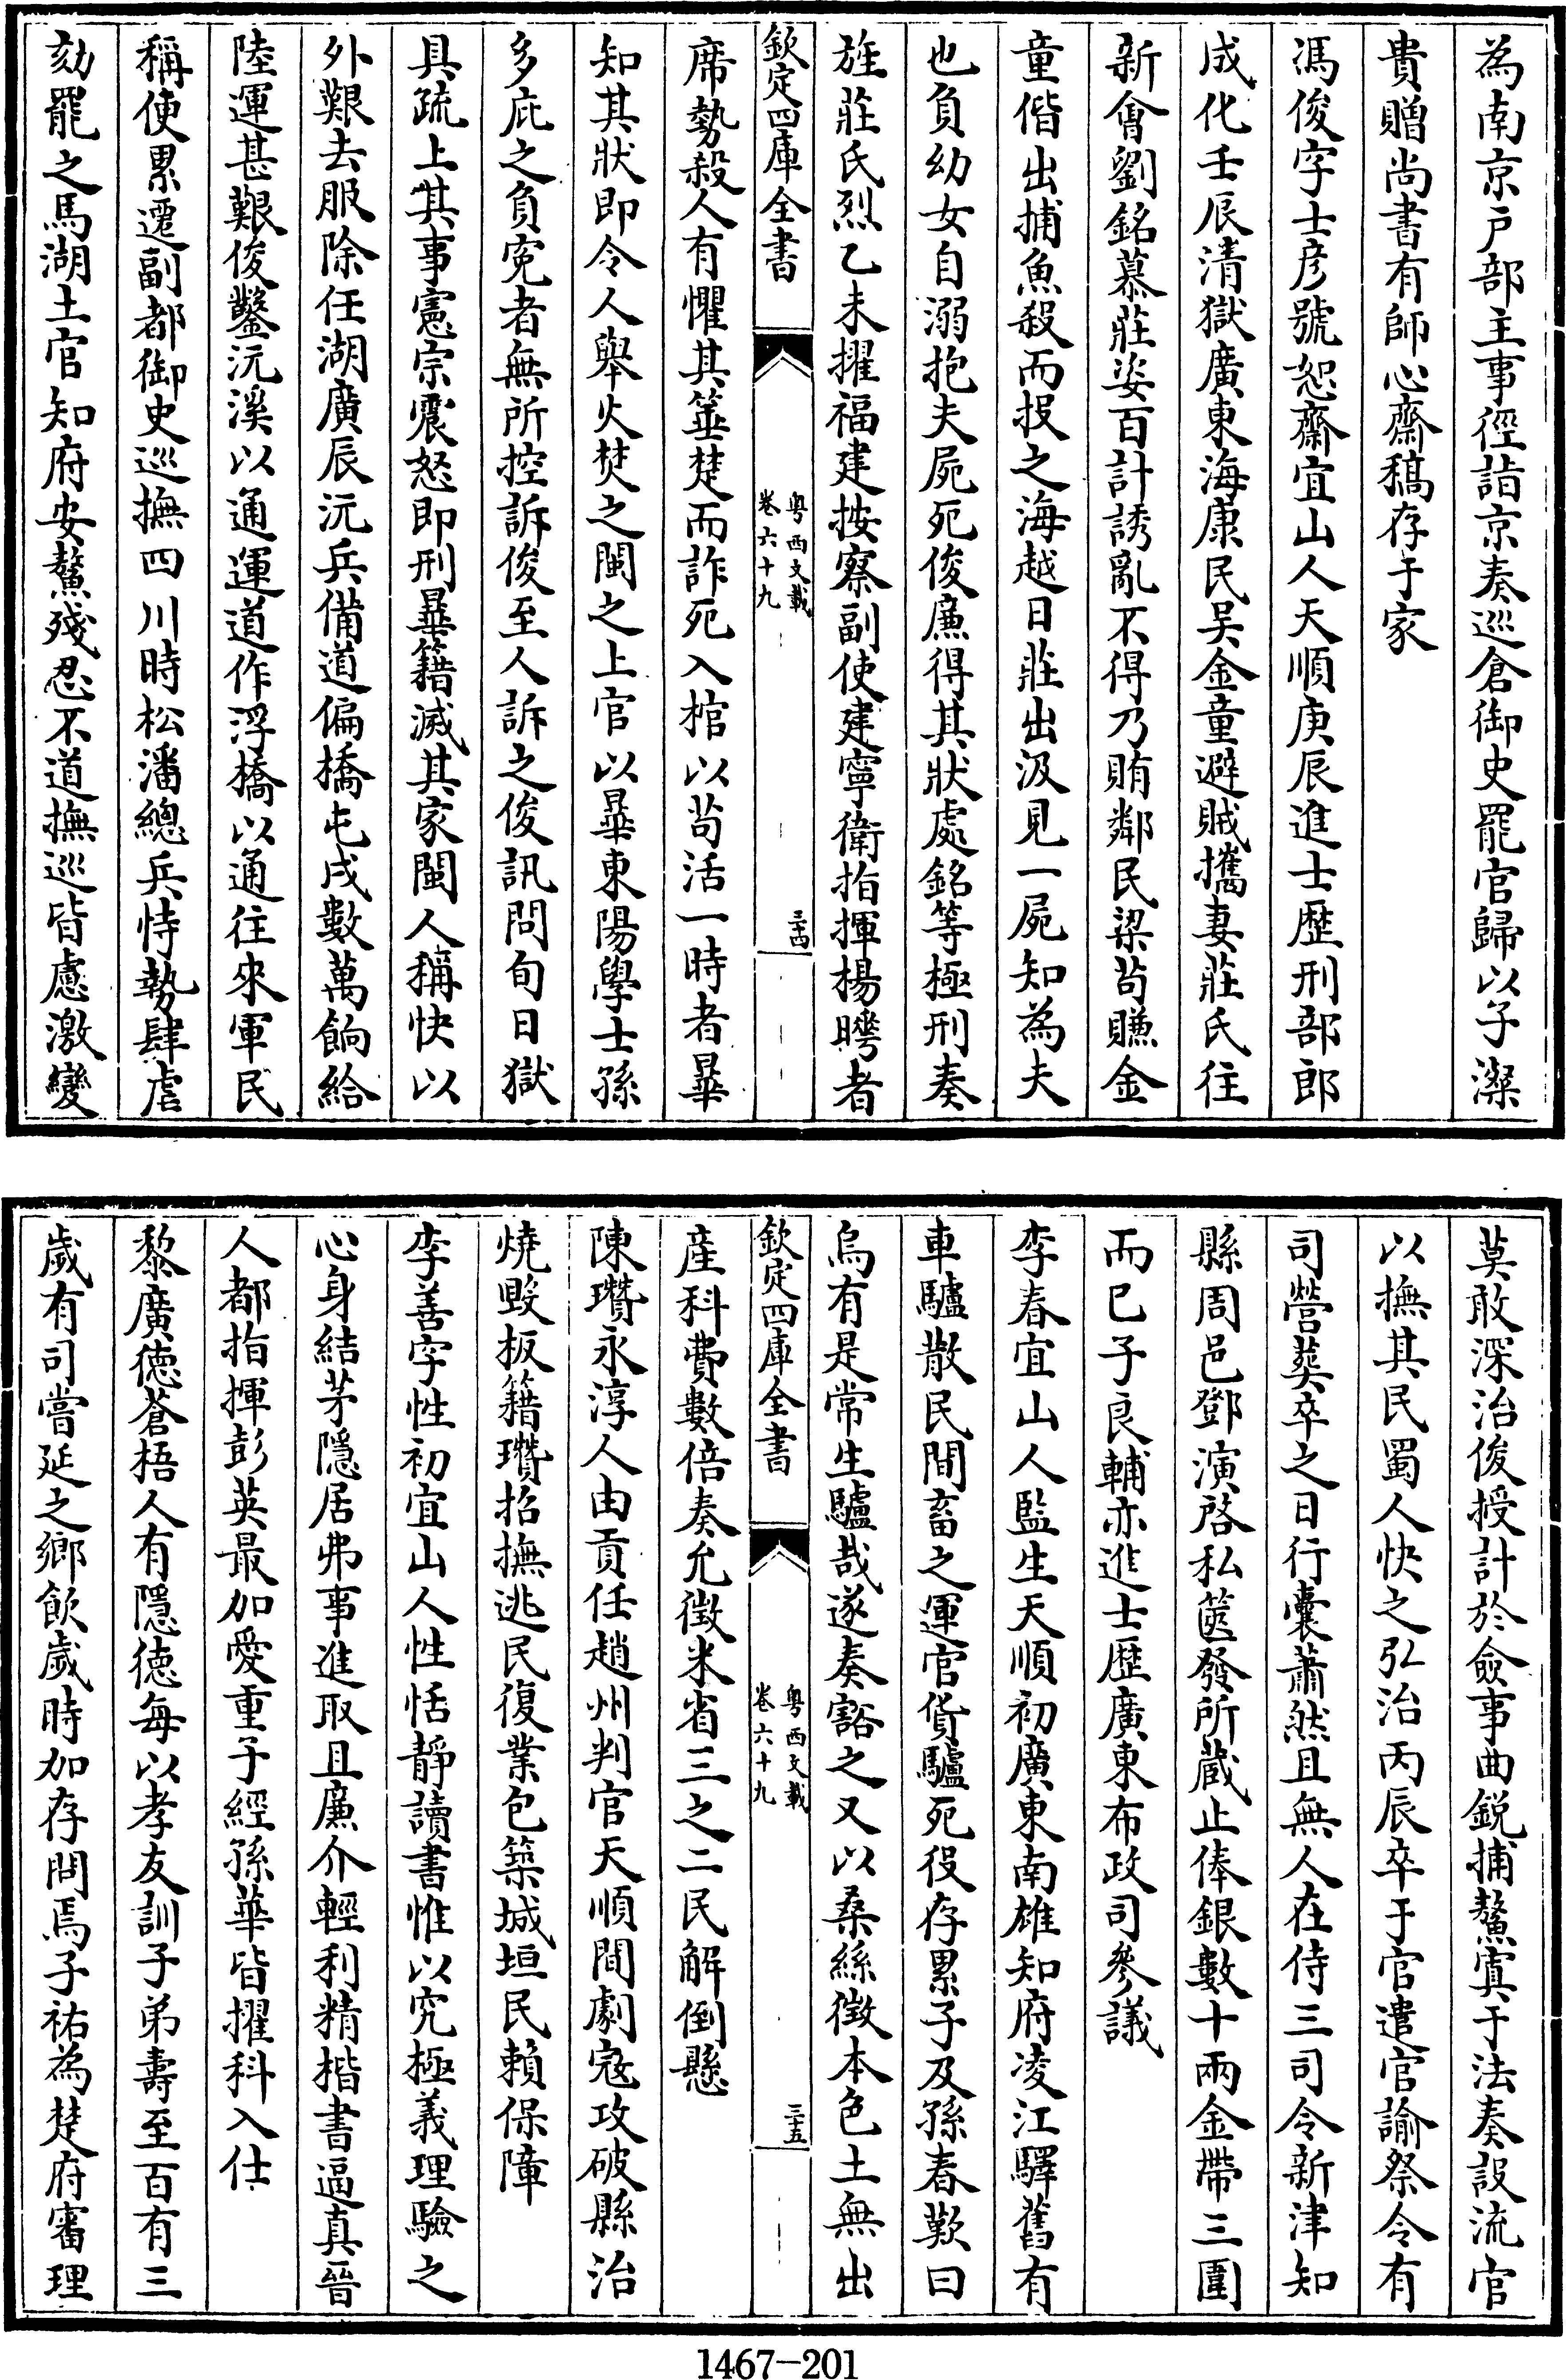 為南京戸部主事徑詣京奏巡倉御史罷官歸以子㴉
貴贈尚書有師心齋稿存于家
馮俊字士彦號恕齋宜山人天順庚辰進士歴刑部郎
成化壬辰清獄廣東海康民吴金童避賊攜妻莊氏往
新㑹劉銘慕莊姿百計誘亂不得乃賄鄰民梁茍賺金
童偕出捕魚殺而投之海越日莊出汲見一屍知為夫
也負幼女自溺抱夫屍死俊廉得其狀處銘等極刑奏
旌莊氏烈乙未擢福建按察副使建寧衛指揮楊曄者
欽定四庫全書
粤西文載
卷六十九
三十四
席勢殺人有懼其箠楚而詐死入棺以茍活一時者畢
知其狀即令人舉火焚之閩之上官以畢東陽學士孫
多庇之負寃者無所控訴俊至人訴之俊訊問旬日獄
具疏上其事憲宗震怒即刑畢籍滅其家閩人稱快以
外艱去服除任湖廣辰沅兵備道偏橋屯戍數萬餉給
陸運甚艱俊鑿沅溪以通運道作浮橋以通往來軍民
稱便累遷副都御史巡撫四川時松潘總兵恃勢肆虐
劾罷之馬湖土官知府安鰲殘忍不道撫巡皆慮激變
莫敢深治俊授計於僉事曲銳捕鰲寘于法奏設流官
以撫其民蜀人快之弘治丙辰卒于官遣官諭祭令有
司營葬卒之日行囊蕭然且無人在侍三司令新津知
縣周邑鄧演啓私篋發所蔵止俸銀數十兩金帶三圍
而已子良輔亦進士歴廣東布政司參議
李春宜山人監生天順初廣東南雄知府凌江驛舊有
車驢散民間畜之運官貨驢死役存累子及孫春歎曰
烏有是常生驢哉遂奏豁之又以桑絲徴本色土無出
欽定四庫全書
粤西文載
卷六十九
三十五
產科費數倍奏允徴米省三之二民解倒懸
陳瓚永淳人由貢任趙州判官天順間劇寇攻破縣治
燒毀板籍瓚招撫逃民復業包築城垣民賴保障
李善字性初宜山人性恬靜讀書惟以究極義理驗之
心身結茅隱居弗事進取且廉介輕利精楷書逼真晉
人都指揮彭英最加愛重子經孫華皆擢科入仕
黎廣徳蒼梧人有隱徳每以孝友訓子弟壽至百有三
歲有司嘗延之鄉飲歲時加存問焉子祐為楚府審理
1467-201